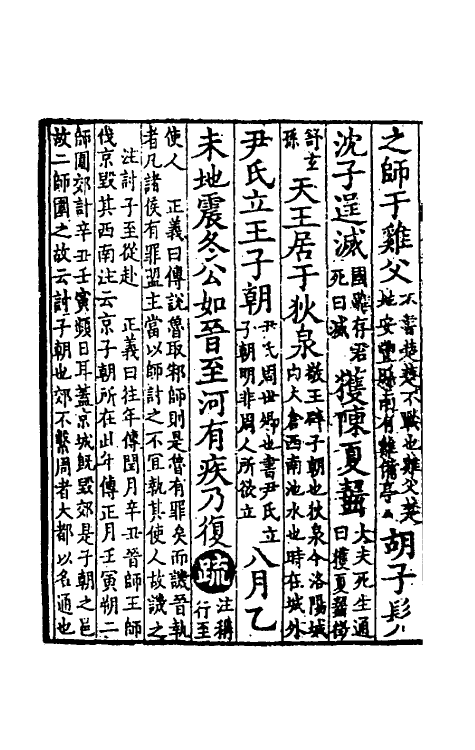 之師于雞父不書楚楚不戰也雞父楚地安豐縣南有雞備亭胡子髠
沈子逞滅國雖存君死曰滅獲陳夏齧大夫死生通曰獲夏齧徵
舒玄孫天王居于狄泉敬王辟子朝也狄泉今洛陽城內大倉西南池水也時在城外
尹氏立王子朝尹氏周世卿也書尹氏立子朝明非周人所欲立八月乙
未地震冬公如晉至河有疾乃復疏注稱行至
使人　正義曰傳說魯取邾師則是魯有罪矣而譏晉執
者凡諸侯有罪盟主當以師討之不宜執其使人故譏之
注討子至從赴　正義曰往年傳閏月辛丑晉師王師
伐京毀其西南注云京子朝所在此年傳正月壬寅朔二
師圍郊計辛丑壬寅頻日耳蓋京城既毀郊是子朝之邑
故二師圍之故云討子朝也郊不繫周者大都以名通也